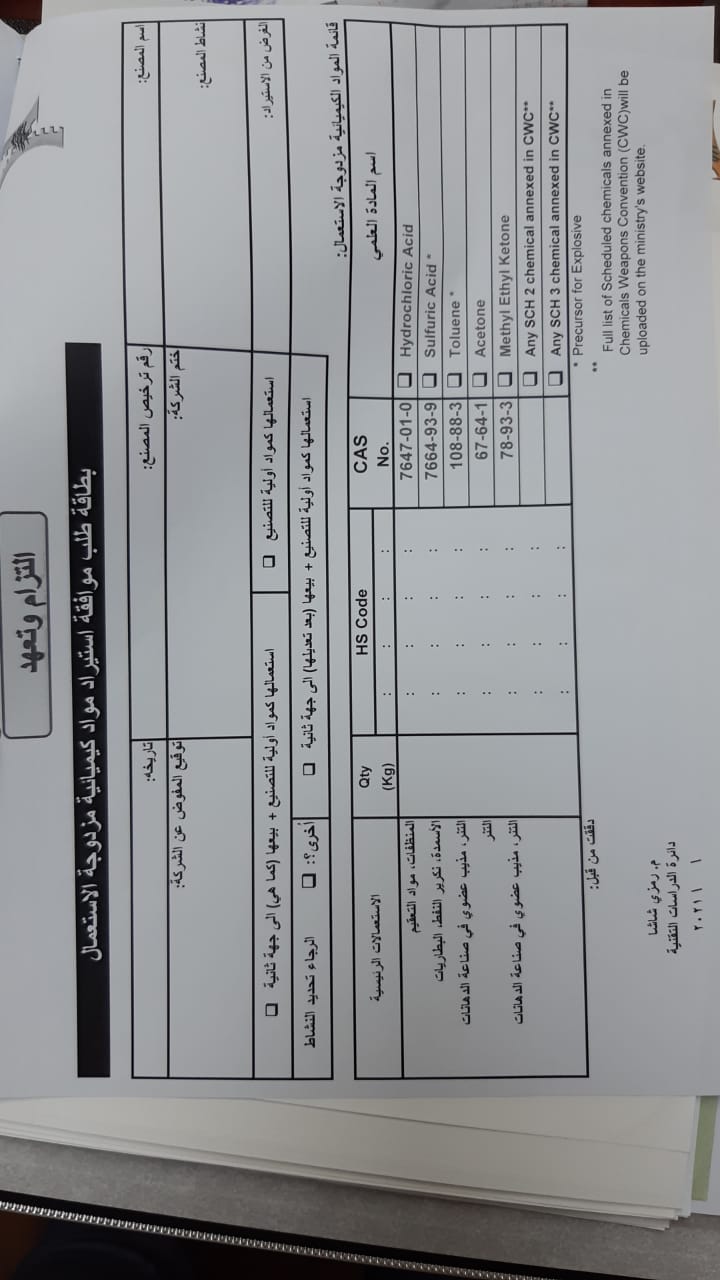 التزام وتعهد
بطاقة طلب موافقة استيراد مواد كيميائية مزدوجة الاستعمال
اسم المصنع: رقم ترخيص المصنع: تاريخه:
نشاط المصنع: ختم الشركة: توقيع المفوض عن الشركة:
الغرض من الاستيراد: ❑ استعمالها كمواد أولية للتصنيع ❑ استعمالها كمواد أولية للتصنيع + بيعها (كما هي) الى جهة ثانية
❑ استعمالها كمواد أولية للتصنيع + بيعها (بعد تعديلها) الى جهة ثانية ❑ أخرى؟: الرجاء تحديد النشاط
قائمة المواد الكيميائية مزدوجة الاستعمال:
اسم المادة العلمي CAS No. HS Code Qty (Kg) الاستعمالات الرئيسية
❑ Hydrochloric Acid 7647-01-0 : : : المنظفات، مواد التعقيم
❑ Sulfuric Acid * 7664-93-9 : : : الأسمدة، تكرير النفط، البطاريات
❑ Toluene * 108-88-3 : : : التنر، مذيب عضوي في صناعة الدهانات
❑ Acetone 67-64-1 : : : التنر
❑ Methyl Ethyl Ketone 78-93-3 : : : التنر، مذيب عضوي في صناعة الدهانات
❑ Any SCH 2 chemical annexed in CWC** : : :
❑ Any SCH 3 chemical annexed in CWC** : : :
* Precursor for Explosive
** Full list of Scheduled chemicals annexed in
Chemicals Weapons Convention (CWC)will be
uploaded on the ministry's website.
دققت من قبل:
م. رمزي شاشا
دائرة الدراسات التقنية